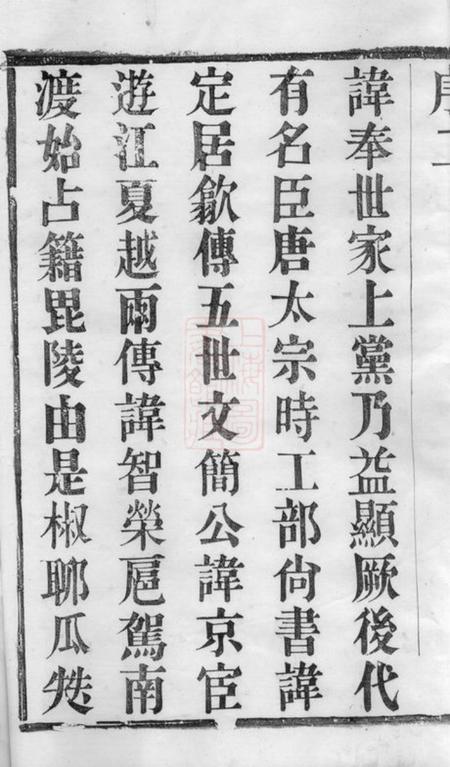 序二
諱奉世家上黨乃益顯厥後代
有名臣唐太宗時工部尚書諱
定居歙傳五世文簡公諱京宦
遊江夏越兩傳諱智榮扈駕南
渡始占籍毘陵由是椒聊瓜瓞